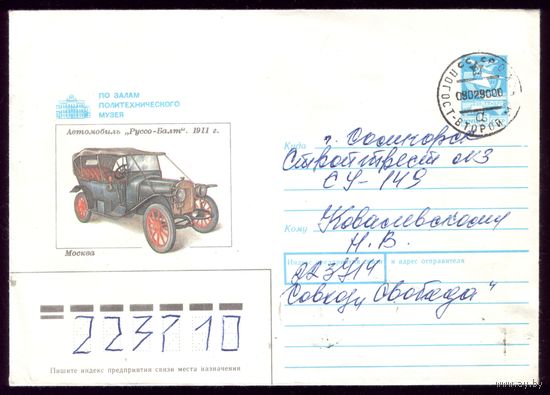 ПО ЗАЛАМ
ПОЛИТЕХНИЧЕСКОГО
МУЗЕЯ
Автомобиль „Руссо-Балт". 1911 г.
Москва
Куда г. Солигорск
Стройтрест №3
СУ-149
Кому Ковалевскому
Н. В.
Индекс и адрес отправителя
223414
Совхоз „Свобода"
223710
Пишите индекс предприятия связи места назначения
ПОГОСТ-ВТОРОЙ
090290